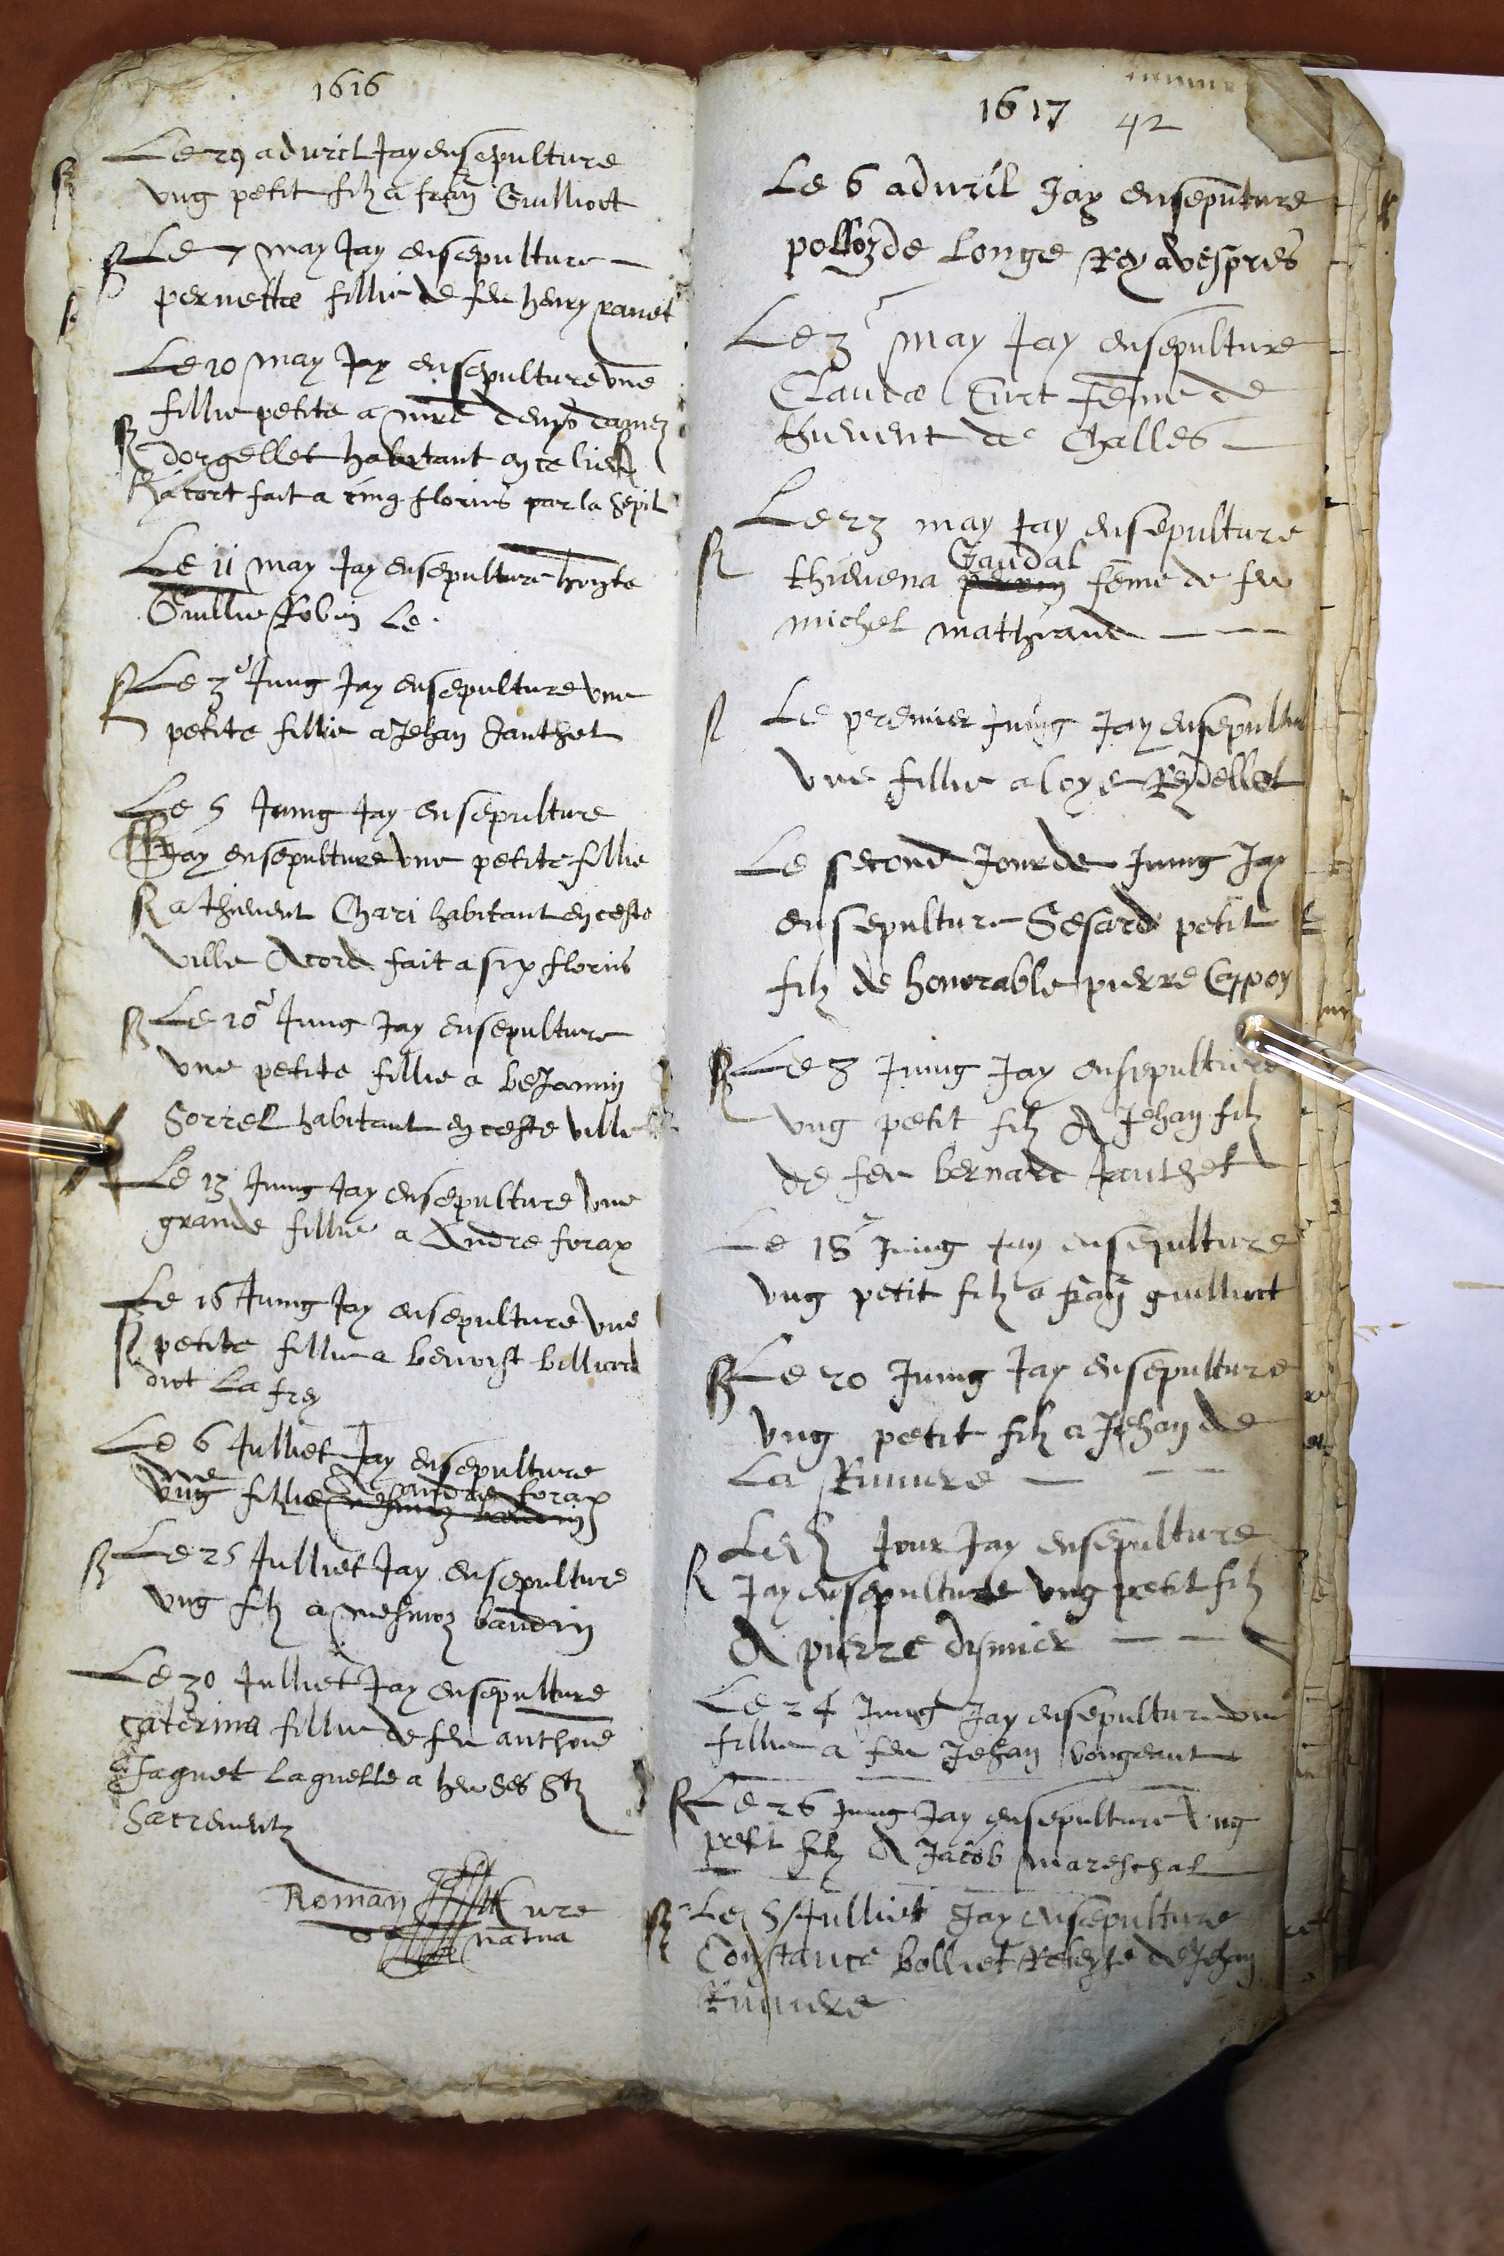 1616
Le 29 advril Jay ensepulture
ung petit filz a fran Guilliot
Le 7 may Jay ensepulture
pernette fillie de feu henry ravet
Le 10 may Jay ensepulture une
fillie petite a mre denys
dorgellet habitant en ce lieu
acort fait a cinq florins par la sepil
Le 11 may Jay ensepulture honeste
Guillie Robin Le
Le 3e Jung Jay ensepulture une
petite fillie a Jehan Janthet
Le 5 Juing Jay ensepulture
Jay ensepulture une petite fillie
a thievent Chari habitant en ceste
ville Acord fait a six florins
Le 10e Jung Jay ensepulture
une petite fillie a beJamin
Sorrel habitant en ceste ville
Le 13 Jung Jay ensepulture une
grande fillie a Andre forax
Le 16 Juing Jay ensepulture une
petite fillie a benoist billiard
dict La frey
Le 6 Julliet Jay ensepulture
une
ung fillie a andre forax
Le 25 Julliet Jay ensepulture
ung filz a mesmoz baudin
Le 30 Julliet Jay ensepulture
Caterina fillie de feu anthoine
Jaquet laquelle a heu ses Stz
Sacrementz
Roman Cure
de natua
1617 42
Le 6 advril Jay ensepulture
de Longe Rey a vespres
Le 3e may Jay ensepulture
Clauda Curt feme de
thievent de Challes
Le 23 may Jay ensepulture
Gaudal
thievena feme de feu
michel mathiraud
Le premier Juing Jay ensepultu
une fillie a loys Reydellet
Le second Jour de Juing Jay
ensepulture Sesard petit
filz de honorable pierre Cappoy
Le 8 Juing Jay ensepulture
ung petit filz A Jehan filz
de feu bernard Janthet
Le 18e Juing Jay ensepulture
ung petit filz a fran guilliot
Le 20 Juing Jay ensepulture
ung petit filz a Jehan de
La Riviere
Jour Jay ensepulture
Jay ensepulture ung petit filz
A pierre disnier
Le 24 Jung Jay ensepulture une
fillie a feu Jehan vongeant
Le 26 Jung Jay ensepulture ung
petit filz A Jacob mareschal
Le 5 Julliet Jay ensepulture
Constance bolliet Releyse de Jehan
Riviere